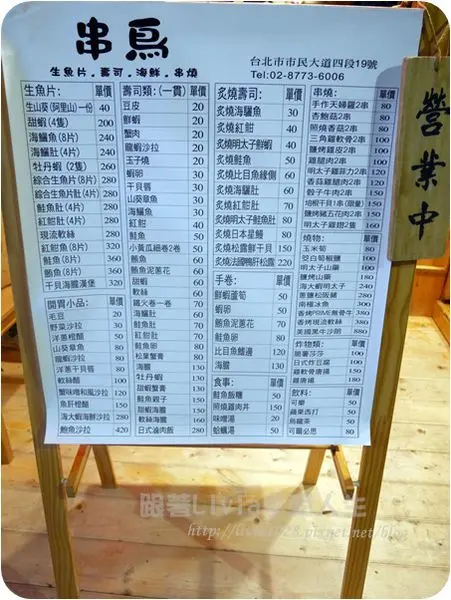 串鳥
生魚片.壽司.海鮮.串燒
台北市市民大道四段19號
Tel:02-8773-6006
營業中
生魚片: 單價
生山葵(阿里山)一份 40
甜蝦(4隻) 200
海鱺魚(8片) 240
海鱺肚(4片) 240
牡丹蝦(2隻) 260
綜合生魚片(8片) 280
綜合生魚片肚(4片) 280
鮭魚肚(4片) 280
紅魽肚(4片) 280
現流軟絲 280
紅魽魚(8片) 320
鮪魚(8片) 360
干貝海膽漢堡 360
開胃小品: 單價
毛豆 20
野菜沙拉 30
洋蔥桂醋 50
山葵章魚 80
洋蔥鮭魚 80
芥末章魚 80
軟絲醋 160
蟹味噌和風沙拉 120
魚肝橙醋 150
海大蝦海鮮沙拉 280
鮑魚沙拉 420
壽司類:(一貫) 單價
豆皮 20
鮮蝦 20
蟹肉 20
龍蝦沙拉 20
玉子燒 20
蝦卵 20
干貝唇 30
山葵章魚 30
海鱺魚 30
紅魽 40
鮭魚 50
小黃瓜細卷2卷 50
鮪魚 60
鮪魚泥蔥花 60
甜蝦 60
軟絲 60
鐵火卷一卷 70
海鱺肚 60
鮭魚肚 70
紅魽肚 70
鮭魚卵 80
松葉蟹膏 80
海膽 130
牡丹蝦 130
甜蝦蟹膏 130
鮭魚親子 150
甜蝦海膽 150
軟絲海膽 160
日式滷肉飯 280
炙燒壽司: 單價
炙燒海鱺魚 30
炙燒紅魽 40
炙燒明太子鮮蝦 40
炙燒鮭魚 50
炙燒比目魚緣側 60
炙燒海鱺肚 60
炙燒紅魽肚 70
炙燒鮭魚肚 70
炙燒明太子鮭魚肚 80
炙燒日本星鰻 80
炙燒松露鮮干貝 150
炙燒法國鴨肝松露 220
手卷: 單價
鮮蝦蘆筍 50
蝦卵 50
鮪魚泥蔥花 70
鮭魚卵 80
比目魚鰭邊 120
海膽 130
食事: 單價
鮭魚飯糰 50
照燒雞肉丼 150
味噌湯 20
蛤蠣湯 50
串燒: 單價
手作天婦羅2串 80
杏鮑菇2串 80
照燒香菇2串 80
三角雞軟骨2串 80
鹽烤雞皮2串 80
雞腿肉2串 100
明太子雞菲力2串 120
香蒜雞腿肉2串 120
骰子牛肉2串 150
培根干貝1串(限量) 150
鹽烤鹹五花肉2串 150
明太子雞翅2隻 160
燒物: 單價
玉米筍 80
明太子山藥 80
鹽烤山藥 80
海大蝦明太子 160
蔥鹽松阪豬 180
南極冰魚 180
香烤現流軟絲 380
美國黑牛沙朗 380
炸物類: 單價
脆薯莎莎 100
日式炸豆腐 100
雞軟骨唐揚 150
雞唐揚 180
飲料: 單價
可樂 50
蘋果西打 50
烏龍茶 50
可爾必思 80
跟著Livia